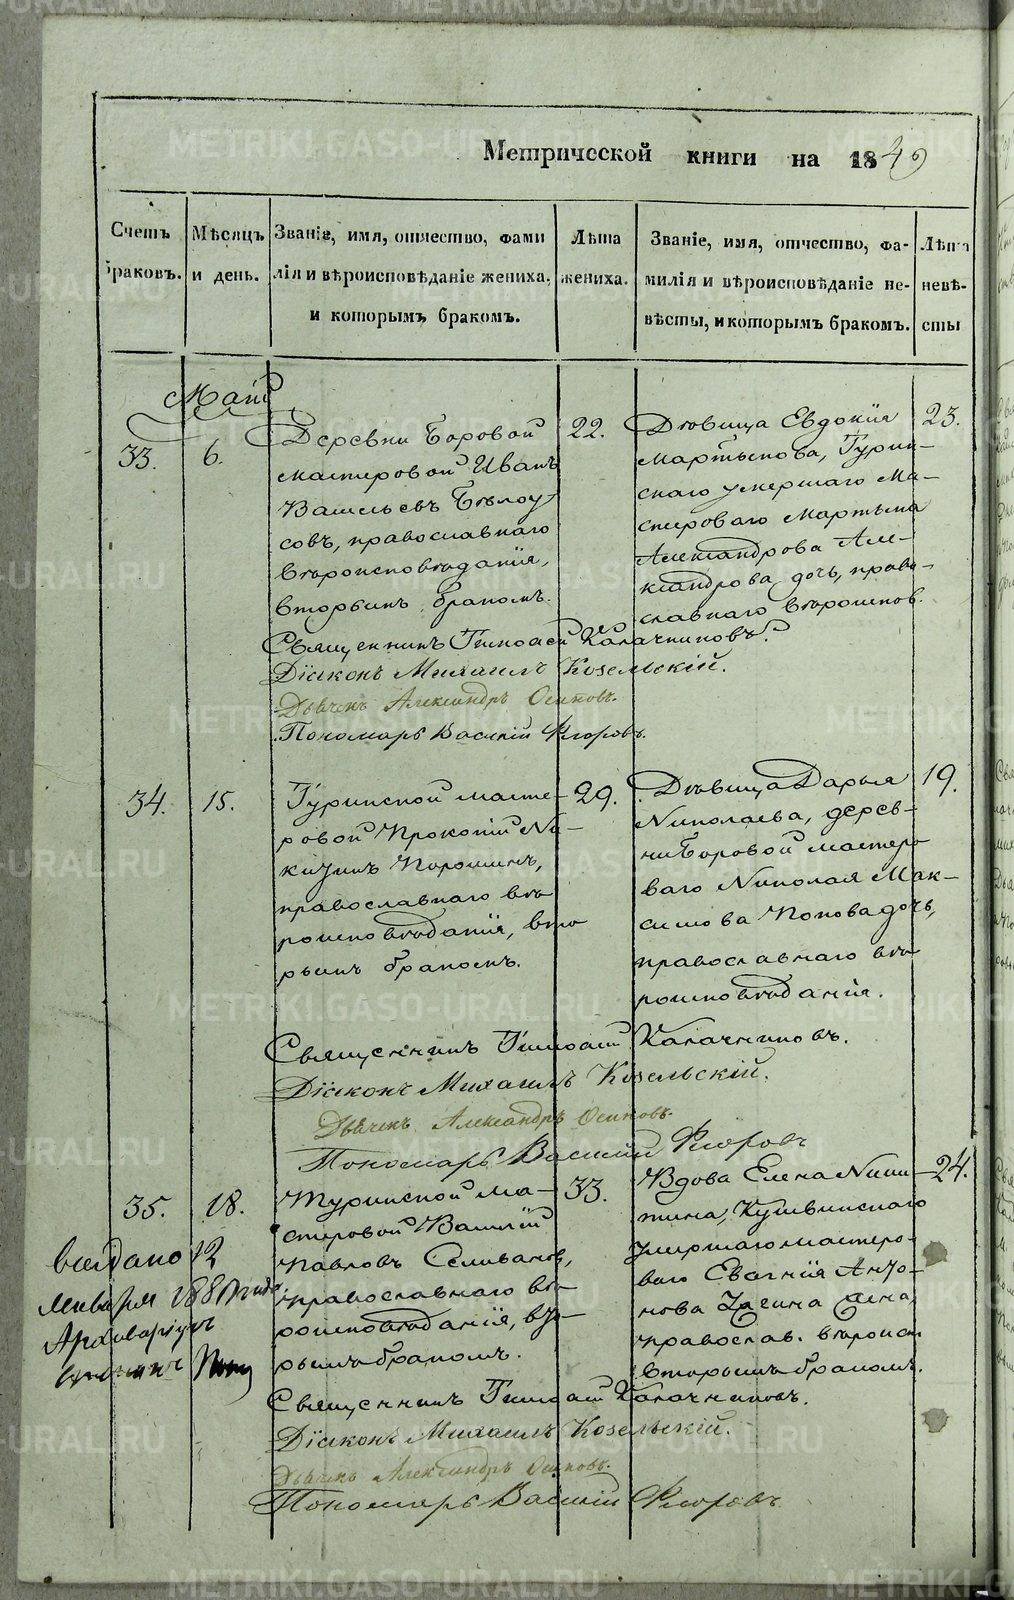 Метрической книги на 1849
Счетъ браковъ.
Мѣсяцъ и день.
Званіе, имя, отчество, фами
лія и вѣроисповѣданіе жениха,
и которымъ бракомъ.
Лѣта жениха.
Званіе, имя, отчество, фа-
милія и вѣроисповѣданіе не-
вѣсты, и которымъ бракомъ.
Лѣта невѣ-
сты
Маій
33.
6.
Деревни Боровой
мастеровой Иванъ
Васильевъ Бѣлоу-
совъ, православнаго
вѣроисповѣданія,
вторымъ бракомъ.
22.
Дѣвица Евдокія
Мартынова, Турин-
скаго умершаго Ма-
стероваго Мартына
Александрова Але-
ксандрова дочь, право-
славнаго вѣроиспов.
23.
Священникъ Тимофей Калачниковъ.
Діаконъ Михаилъ Козельскій.
Дьячекъ Александръ Осиповъ.
Пономарь Василій Флоровъ.
34.
15.
Туринской масте-
ровой Прокопій Ни-
китинъ Порошинъ,
православнаго вѣ-
роисповѣданія, вто
рымъ бракомъ.
29.
Дѣвица Дарья
Николаева, дерев-
ни Боровой мастеро
ваго Николая Мак-
симова Попова дочь,
православнаго вѣ-
роисповѣданія.
19.
Священникъ Тимофей Калачниковъ.
Діаконъ Михаилъ Козельскій.
Дьячекъ Александръ Осиповъ.
Пономарь Василій Флоровъ
35.
18.
Туринской ма-
стеровой Василій
Павловъ Селивановъ,
православнаго вѣ-
роисповѣданія, вто-
рымъ бракомъ.
33.
Вдова Елена Ники-
тина, Кушвинскаго
умершаго мастеро-
ваго Евгенія Анто-
нова жена,
православ. вѣроисп.
вторымъ бракомъ.
24.
выдано 12
Января
Архиваріусъ
Священникъ Тимофей Калачниковъ.
Діаконъ Михаилъ Козельскій.
Дьячекъ Александръ Осиповъ.
Пономарь Василій Флоровъ
METRIKI.GASO-URAL.RU